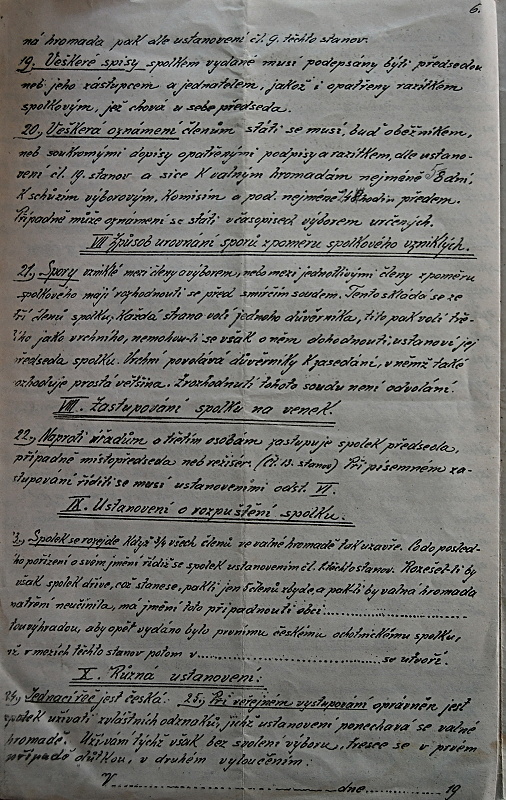 6.
ná hromada pak dle ustanovení čl. 9. těchto stanov.
19., Veškere spisy spolkem vydané musí podepsány býti předsedou
neb jeho zástupcem a jednatelem, jakož i opatřeny razítkem
spolkovým, jež chová u sebe předseda.
20., Veškera oznámení členům státi se musí, buď oběžníkem,
neb soukromými dopisy opatřenými podpisy a razítkem, dle ustano-
vení čl. 19. stanov a sice k valným hromadám nejméně 8 dní,
k schůzím výborovým, komisím a pod. nejméně 48 hodin předem.
Případně může oznámení se státi v časopisech výborem určených.
VII Způsob urovnání sporů z poměru spolkového vzniklých.
21., Spory vzniklé mezi členy a výborem, nebo mezi jednotlivými členy z poměru
spolkového mají rozhodnouti se před smírčím soudem. Tento skládá se ze
tří členů spolku. Každá strana volí jednoho důvěrníka, tito pak volí tře-
tího jako vrchního, nemohou-li se však o něm dohodnouti ustanoví jej
předseda spolku. Vrchní povolává důvěrníky k zasedání, v němž také
rozhoduje prostá většina. Z rozhodnutí tohoto soudu není odvolání.
VIII. Zastupování spolku na venek.
22., Naproti úřadům a třetím osobám zastupuje spolek předseda,
případně místopředseda neb režisér. (Čl. 13. stanov) Při písemném za-
stupování říditi se musí ustanoveními odst. VI.
IX. Ustanovení o rozpuštění spolku.
Spolek se rozejde když 3/4 všech členů ve valné hromadě tak uzavře. Co do posled-
ního pořízení o svém jmění řídí se spolek ustanovením čl. těchto stanov. Rozešel-li by
však spolek dříve, což stane se, pakli jen 5 členů zbyde, a pakli by valná hromada
opatření neučinila, má jmění toto připadnouti obci ..........
s tou výhradou, aby opět vydáno bylo prvnímu českému ochotnickému spolku,
jž v mezích těchto stanov potom v .......... se utvoří.
X. Různá ustanovení:
24., Jednací řeč jest česká. 25., Při veřejném vystupování oprávněn jest
spolek užívati zvláštních odznaků, jichž ustanovení ponechává se valné
hromadě. Užívání týchž však bez svolení výboru, tresce se v prvém
případě důtkou, v druhém vyloučením:
V .......... dne .......... 19